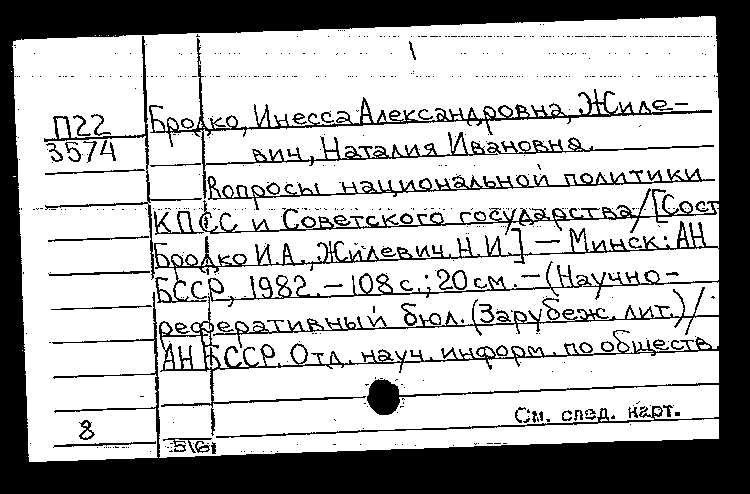 П22
3574
Бродко, Инесса Александровна, Жиле-
вич, Наталия Ивановна.
Вопросы национальной политики
КПСС и Советского государства/[Сост
Бродко И.А., Жилевич Н.И.] — Минск: АН
БССР, 1982. — 108 с.; 20 см. — (Научно-
реферативный бюл. (Зарубеж. лит.)/
АН БССР. Отд. науч. информ. по обществ.
См. след. карт.
8